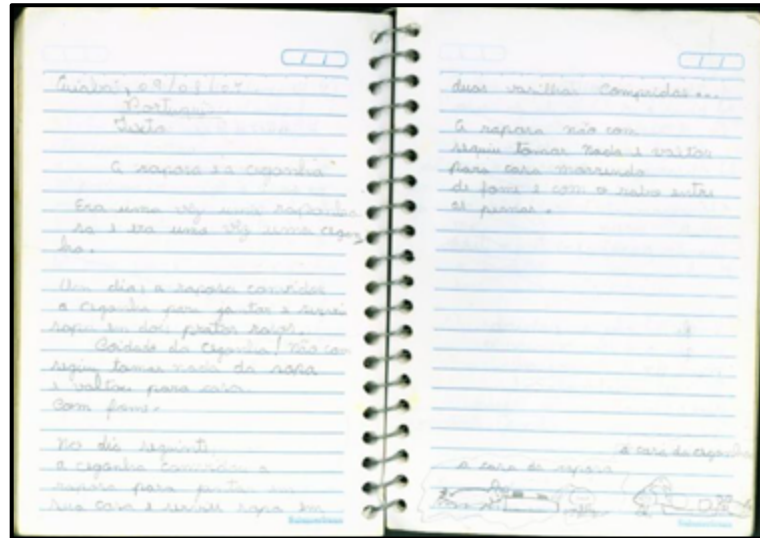 Cuiabá, 09/08/07
Português
Texto
A raposa e a cegonha
Era uma vez uma raposa
e era uma vez uma cegonha.
Um dia, a raposa convidou
a cegonha para jantar e serviu
sopa em dois pratos rasos.
Coidado da cegonha! não con
seguiu tomar nada da sopa
e voltou para casa
Com fome.
No dia seguinte
a cegonha convidou a
raposa para jantar em
sua casa e serviu sopa em
duas vasilhas Compridas...
A raposa não con
seguiu tomar nada e voltou
para casa morrendo
de fome e com o rabo entre
as pernas.
a casa da cegonha
a casa da raposa